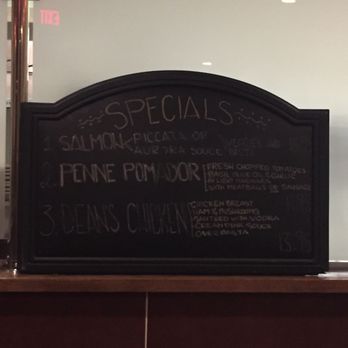 SPECIALS
1. SALMON PICCATA OR
AURORA SOUCE
2. PENNE POMADOR
FRESH CHOPPED TOMATOES
BASIL OLIVE OIL & GARLIC
WITH MEATBALLS OR SAUSAGE
3. DEANS CHICKEN
CHICKEN BREAST
HAM & MUSHROOMS
SAUTEED WITH VODKA
CREAM PINK SOUCE
OVER PASTA